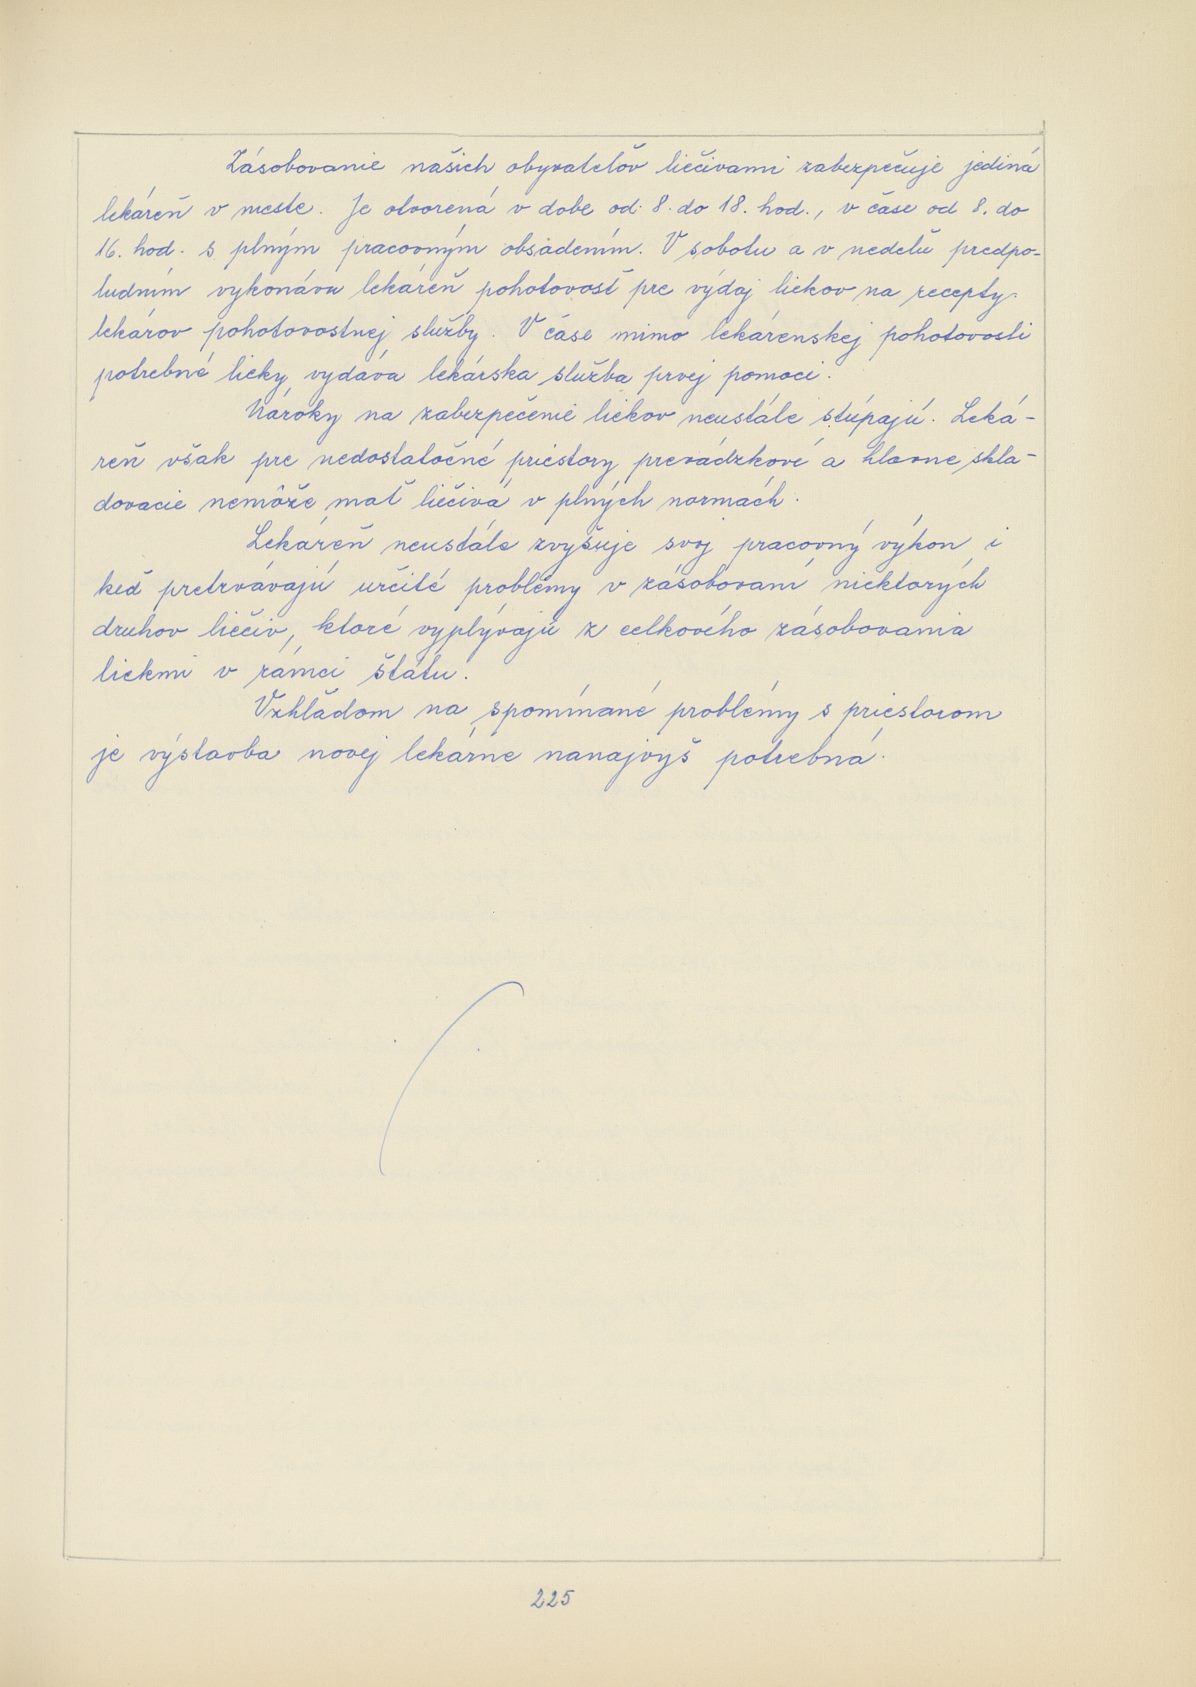 Zásobovanie našich obyvateľov liečivami zabezpečuje jediná
lekáreň v meste. Je otvorená v dobe od 8. do 18. hod., v čase od 8. do
16. hod. s plným pracovným obsadením. V sobotu a v nedeľu predpo-
ludním vykonáva lekáreň pohotovosť pre výdaj liekov na recepty
lekárov pohotovostnej služby. V čase mimo lekárenskej pohotovosti
potrebné lieky vydáva lekárska služba prvej pomoci.
Nároky na zabezpečenie liekov neustále stúpajú. Leká-
reň však pre nedostatočné priestory prevádzkové a hlavne skla-
dovacie nemôže mať liečivá v plných normách.
Lekáreň neustále zvyšuje svoj pracovný výkon i
keď pretrvávajú určité problémy v zásobovaní niektorých
druhov liečiv, ktoré vyplývajú z celkového zásobovania
liekmi v rámci štátu.
Vzhľadom na spomínané problémy s priestorom
je výstavba novej lekárne nanajvýš potrebná.
225